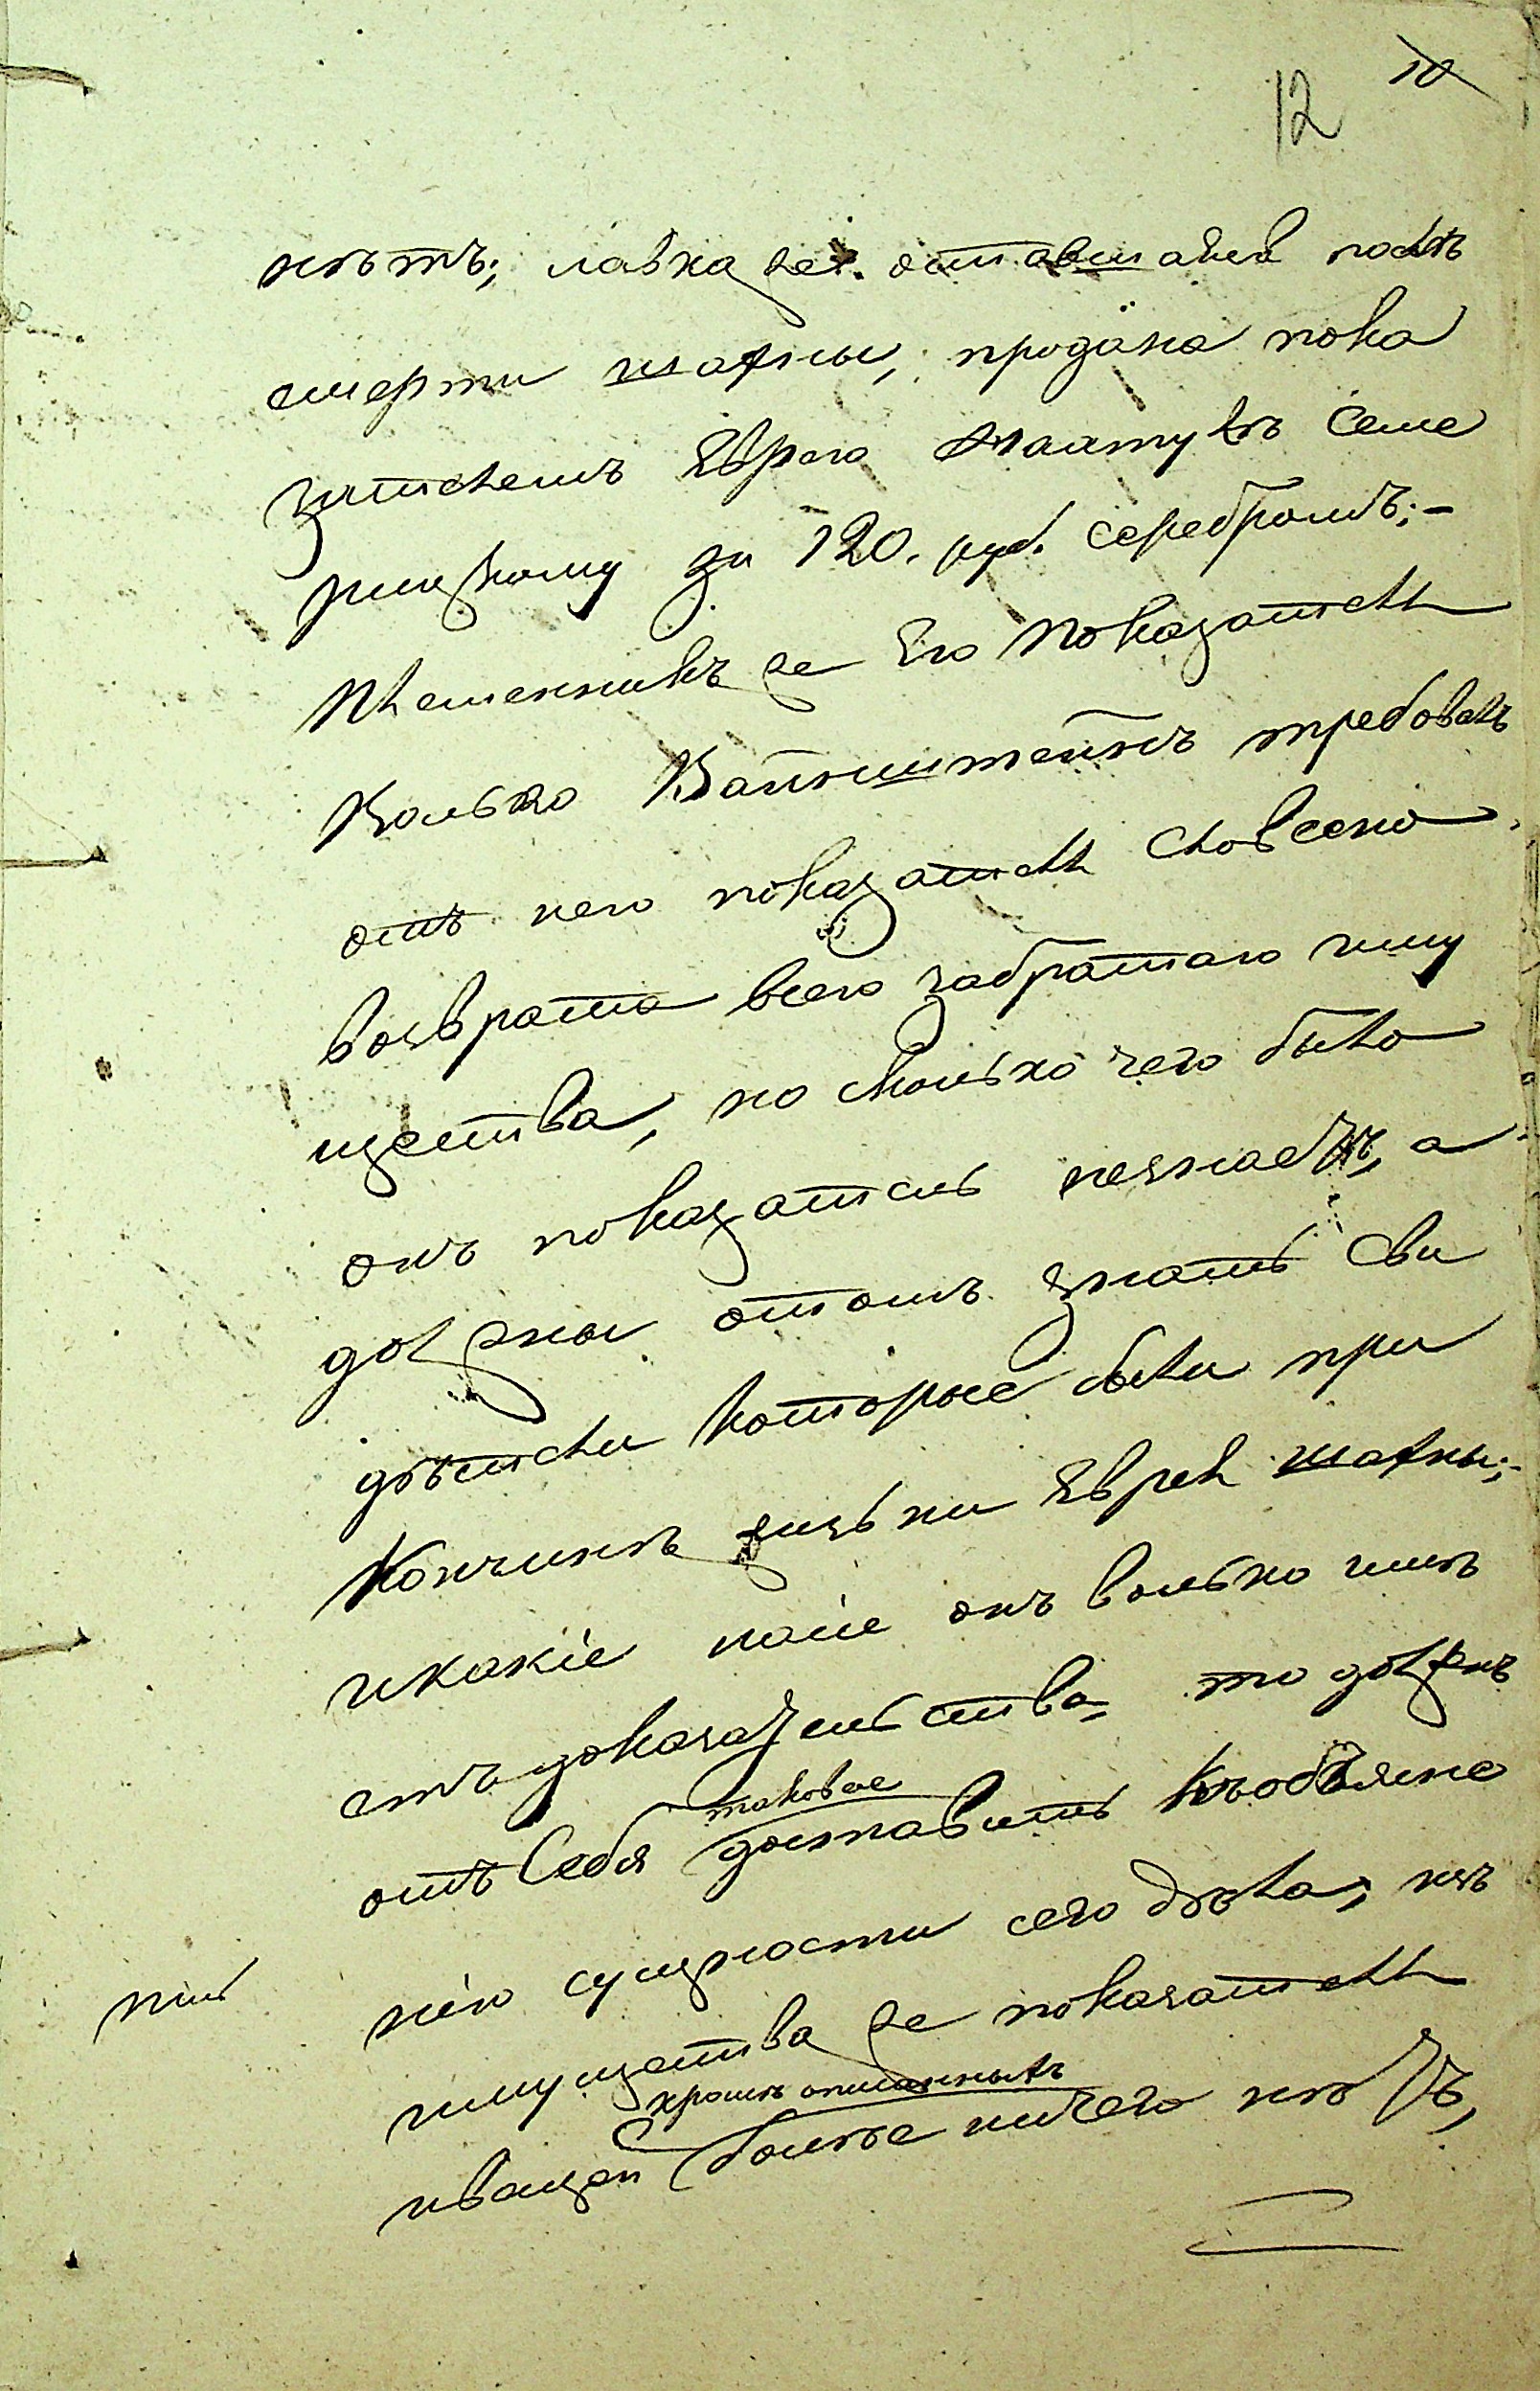 10
12
нѣтъ; лавка же оставшаяся послѣ
смерти шахны, продана пока
зателемъ Еврею Семе
рицкому за 120. руб. серебромъ;-
племенникъ же Его показателя
Волько Вайнштейнъ требовалъ
отъ него показателя словесно
возврата всего забратаго иму
щества, но сколько чего было
онъ показатель незнаетъ, а
должны отомъ знать Сви
дѣтели которые были при
Кончинѣ жизни Еврея шахны;-
икакіе наіе онъ волько имѣ
етъ доказательства, то долженъ
таковые
отъ Себя доставить Къобъясне
нію сущности сего дѣла; изъ
имущества же показателя
кромѣ описанныхъ
ивещей болѣе ничего нѣтъ,